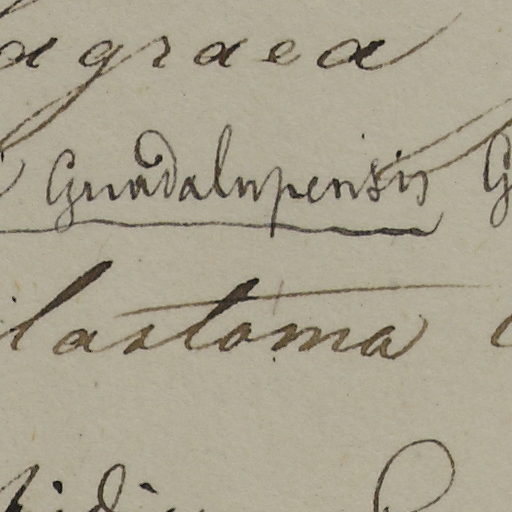 agraea
Guadalupensis G
lastoma